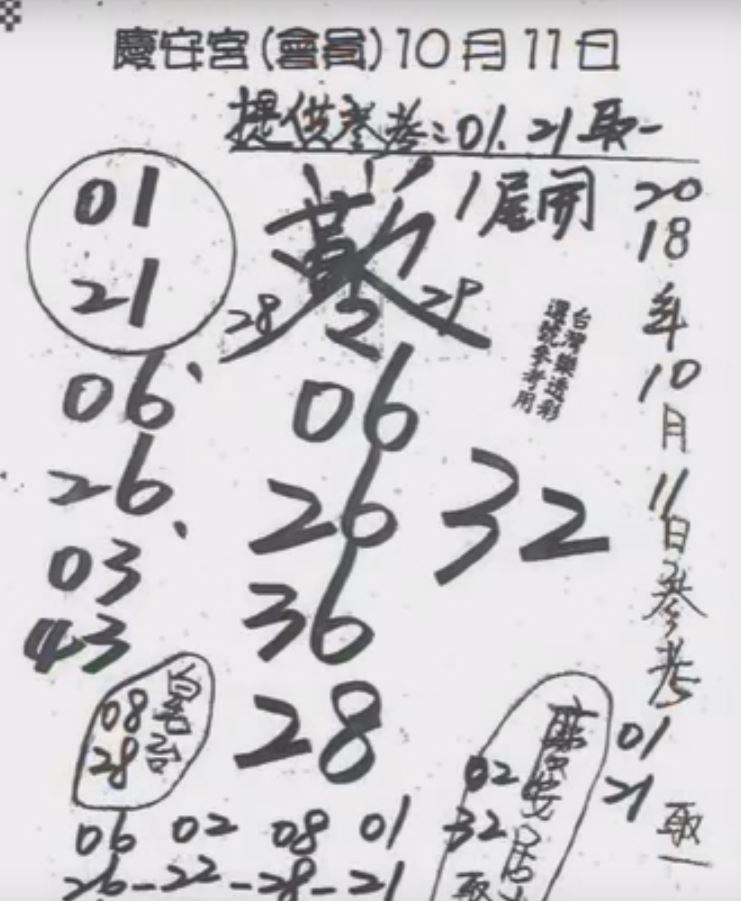 慶安宮(會員)10月11日
提供參考:01.21取一
01
21
1尾開
28
29
2018年10月11日參考
台灣樂透彩
選號參考用
06
26
03
43
06
26
36
28
32
08
28
06 02 08 01
26-22-28-21
02
32
取
慶安宮
01
21
取一